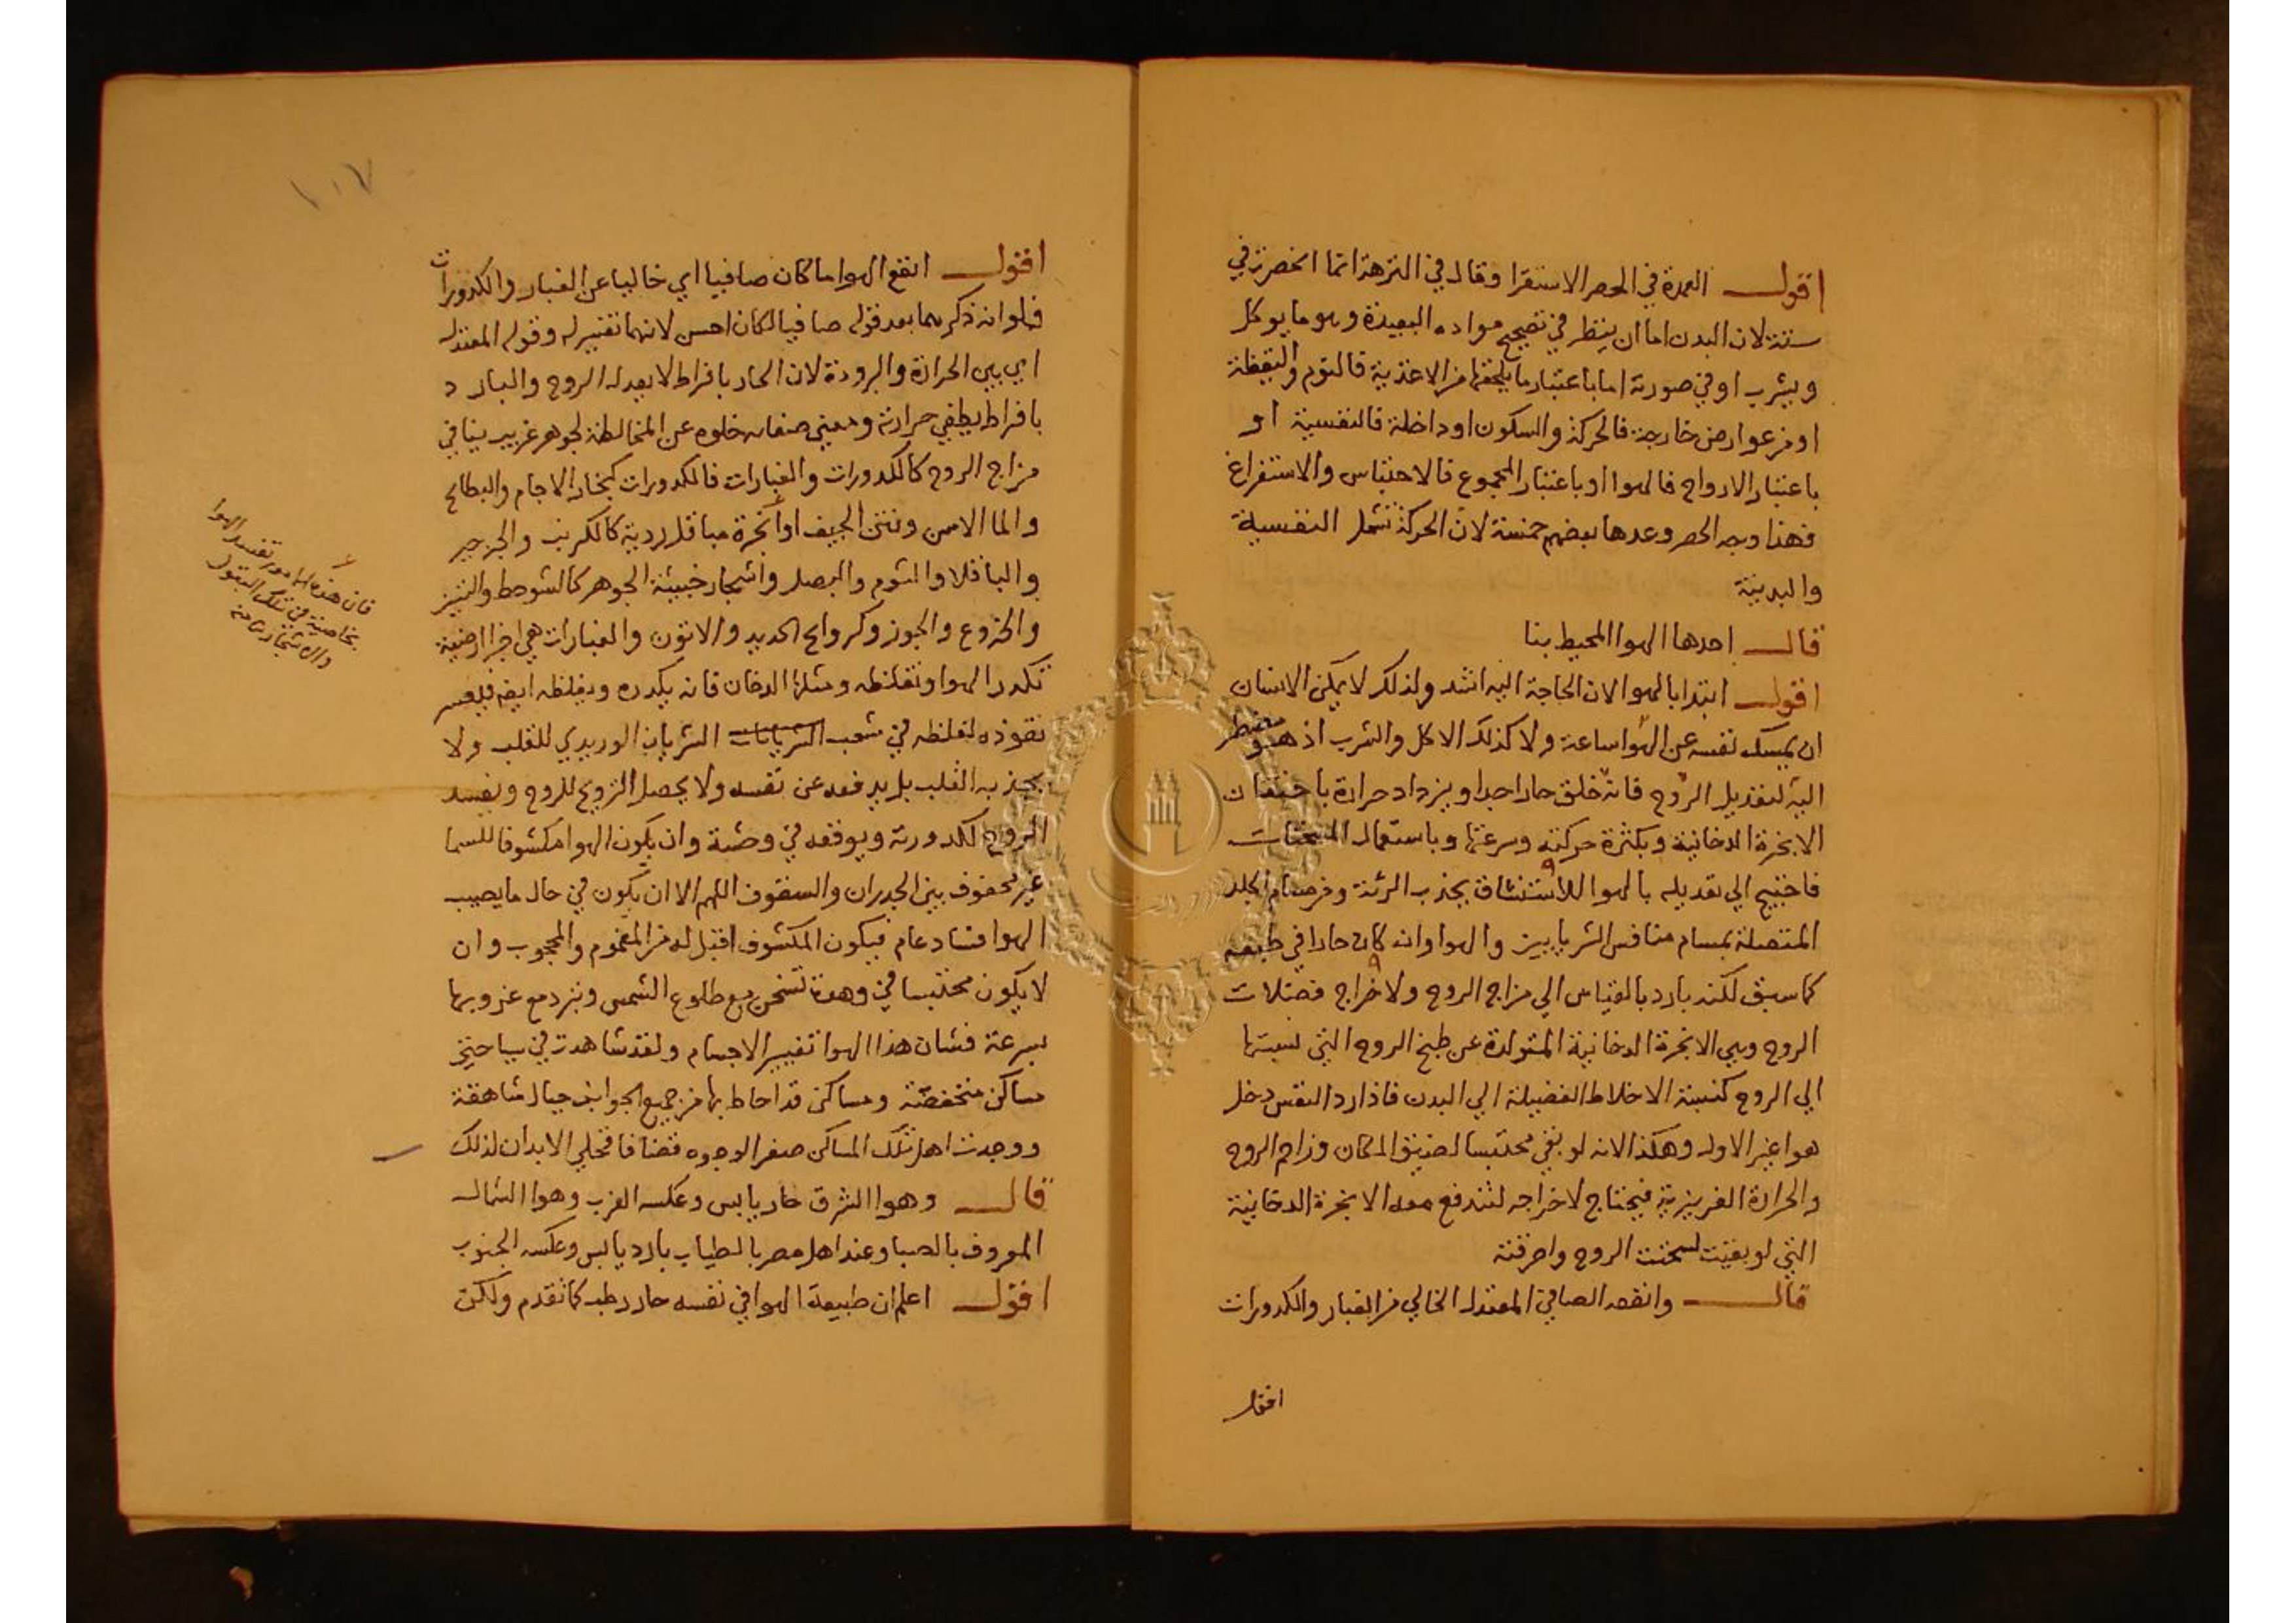 اقول العمدة في الحصر الاستقرا وقال في النزهة انما انحصرت في
ستة لان البدن اما ان ينظر في تصحيح مواده البعيدة وهو ما يوكل
ويشرب او في صورته اما باعتبار ما يلحقها من الاغذية فالنوم واليقظة
او من عوارض خارجة فالحركة والسكون او داخلة فالنفسية او
باعتبار الارواح فالهوا او باعتبار المجموع فالاحتباس والاستفراغ
فهذا وجه الحصر وعدها بعضهم خمسة لان الحركة تشمل النفسية
والبدنية
قال احدها الهوا المحيط بنا
اقول ابتدا بالهوا لان الحاجة اليه اشد ولذلك لا يمكن الانسان
ان يمسك نفسه عن الهوا ساعة ولا كذلك الاكل والشرب اذ هو مضطر
اليه لتعديل الروح فانه خلق حارا جدا ويزداد حرارة باحتقان
الابخرة الدخانية وبكثرة حركته وسرعتها وباستعمال المسخنات
فاحتيج الي تعديله بالهوا للاستنشاق بجذب الرئة ومن مسام الجلد
المتصلة بمسام منافس الشرايين والهوا وان كان حارا في طبعه
كما سبق لكنه بارد بالقياس الي مزاج الروح ولاخراج فضلات
الروح وهي الابخرة الدخانية المتولدة عن طبخ الروح التي نسبتها
الي الروح كنسبة الاخلاط الفضلية الي البدن فاذا رد النفس دخل
هوا غير الاول وهكذا لانه لو بقي محتبسا لضيق المكان وزاحم الروح
والحرارة الغريزية فيحتاج لاخراجه لتندفع معه الابخرة الدخانية
التي لو بقيت لسخنت الروح واحرقته
قال وانفعه الصافي المعتدل الخالي من الغبار والكدورات
اقول
١٠٧
اقول انفع الهوا ما كان صافيا اي خاليا عن الغبار والكدورات
فلو انه ذكرهما بعد قوله صافيا لكان احسن لانهما تفسير له وقوله المعتدل
اي بين الحرارة والبرودة لان الحار بافراط لا يعدل الروح والبارد
بافراط يطفي حرارته ومعني صفائه خلوه عن المخالطة لجوهر غريب ينافي
مزاج الروح كالكدورات والغبارات فالكدورات كبخار الاجام والبطائح
والما الاسن ونتن الجيف او ابخرة مباقل ردية كالكرنب والجرجير
والباقلا والثوم والبصل واشجار خبيثة الجوهر كالشوحط والتين
والخروع والجوز وكروائح الحديد والاتون والغبارات هي اجزا ارضية
تكدر الهوا وتغلظه ومثلها الدخان فانه يكدره ويغلظه ايضا فيعسر
نفوذه لغلظه في شعب الشريانات الشريان الوريدي للقلب ولا
يجذبه القلب بل يدفعه عن نفسه ولا يحصل الترويح للروح ويفسد
الروح لكدورته ويوقفه في وحشة وان يكون الهوا مكشوفا للسما
غير محقوف بين الجدران والسقوف اللهم الا ان يكون في حال ما يصيب
الهوا فساد عام فيكون المكشوف اقبل له من المغموم والمحجوب وان
لا يكون محتبسا في وهدة تسخن مع طلوع الشمس وتبرد مع غروبها
بسرعة فشان هذا الهوا تغيير الاجسام ولقد شاهدت في سياحتي
مساكن منخفضة ومساكن قد احاط بها من جميع الجوانب جبال شاهقة
ووجدت اهل تلك المساكن صفر الوجوه قضافا قحلي الابدان لذلك
قال وهوا الشرق حار يابس وعكسه الغرب وهوا الشمال
المعروف بالصبا وعند اهل مصر بالطياب بارد يابس وعكسه الجنوب
اقول اعلم ان طبيعة الهوا في نفسه حار رطب كما تقدم ولكن
فان هذه الامور تفسد الهوا
بخاصية في تلك البقول
والاشجار